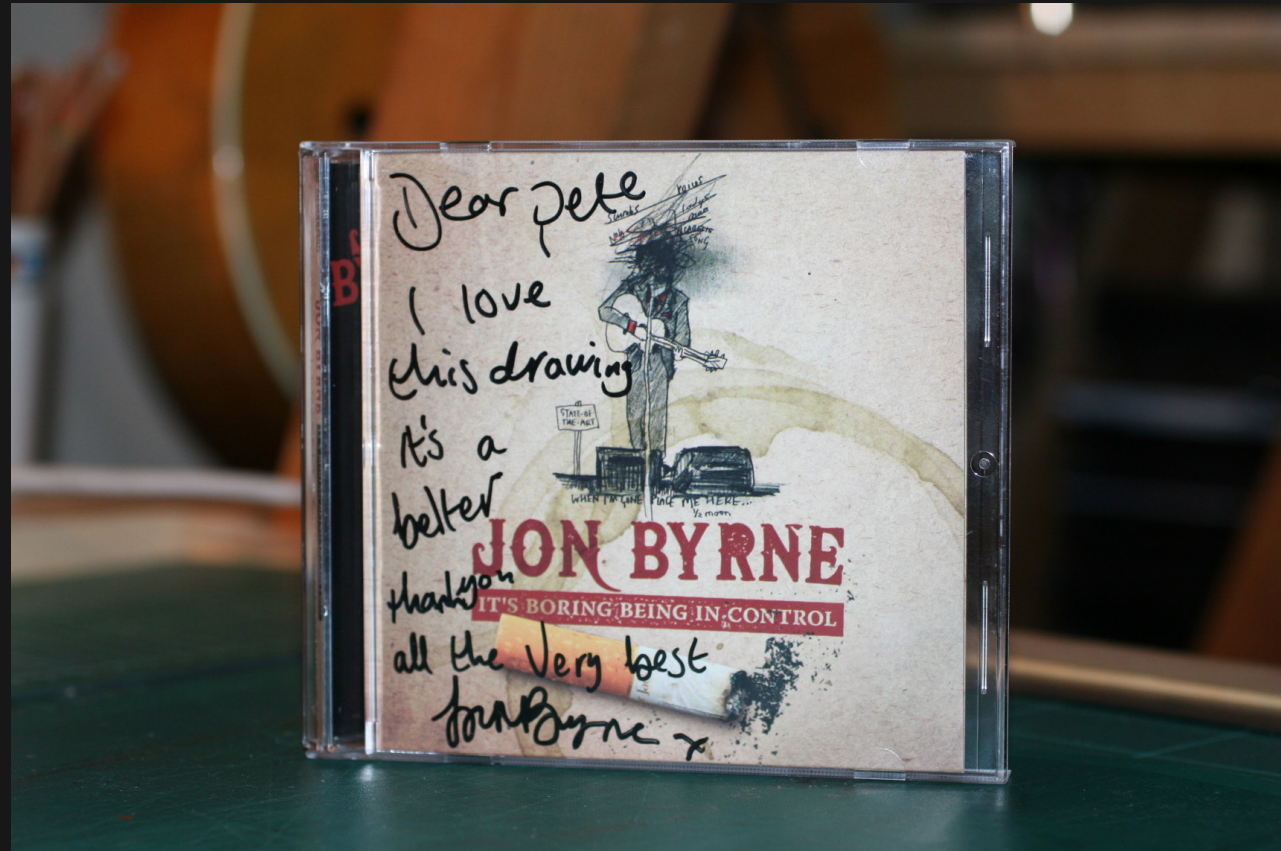 Dear pete
I love
this drawing
it's a
belter
thankyou
all the Very best
Jon Byrne x
STATE-OF
THE-ART
WHEN I'M GONE PLACE ME HERE...
1/2 moon
JON BYRNE
IT'S BORING BEING IN CONTROL
B